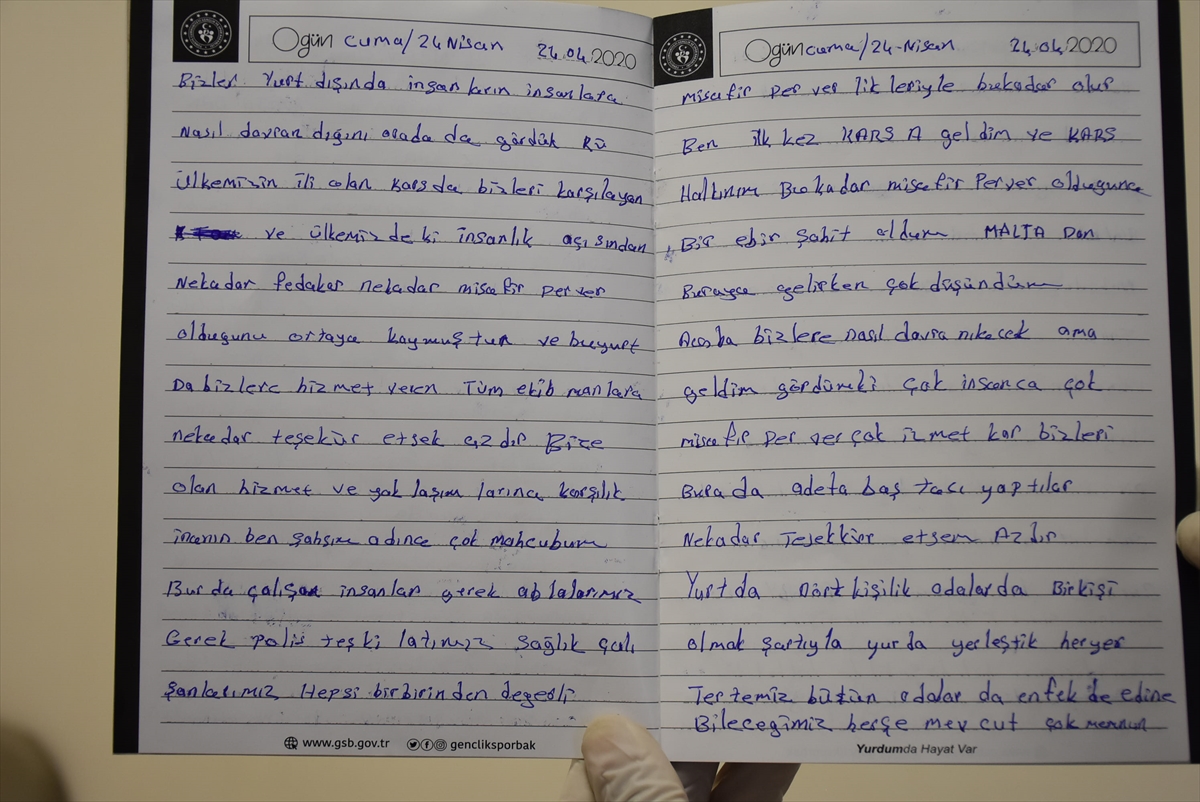 O gün cuma/24 Nisan 24.04.2020
Bizler Yurt dışında insanların insanlara
Nasıl davran dığını orada da gördük
Ülkemizin ili olan Karsda bizleri karşılayan
ve ülkemiz de ki insanlık açısından
Nekadar fedakar nekadar misafir perver
olduğunu ortaya koymuştur ve
Da bizlere hizmet veren Tüm ekib manlara
nekadar teşekür etsek azdır Bize
olan hizmet ve yak laşım larına karşılık
inanın ben şahsım adınca çok mahcubum
Burda çalışan insanlar gerek ablalarımız
Gerek polis teşki latımız sağlık çalı
şanlarımız Hepsi birbirinden değerli
www.gsb.gov.tr gencliksporbak
O gün cuma/24-Nisan 24.04.2020
misafir per ver lik leriyle bukadar olur
Ben ilk kez KARS A geldim ve KARS
Halkının Bukadar misafir Perver olduguna
Bir ebir şahit oldum MALTA Dan
Buraya gelirken çok düşündüm
Acaba bizlere nasıl davra nıcecek ama
geldim gördümki çok insanca çok
misafir per ver çok izmet kar bizleri
Bura da adeta baş tacı yaptılar
Nekadar Teşekkür etsem Azdır
Yurt da dört kişilik odalarda Birkişi
olmak şartıyla yurda yerleştik heryer
Tertemiz bütün odalar da enfek de edine
Bileceğimiz herşe mevcut çok memnun
Yurdumda Hayat Var